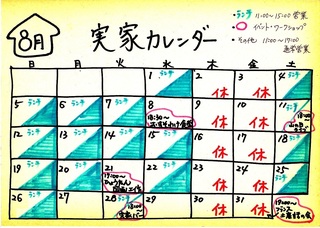 8月
実家カレンダー
・ランチ 11:00〜15:00 営業
・ イベント・ワークショップ
・その他 11:00〜17:00
通常営業
日 月 火 水 木 金 土
1 ランチ 2 休 3 休 4 ランチ
5 ランチ 6 ランチ 7 ランチ 8 18:30〜 9 休 10 休 11 18:00〜
12 ランチ 13 ランチ 14 ランチ 15 ランチ 16 休 17 休 18 ランチ
19 ランチ 20 ランチ 21 19:00〜 22 ランチ 23 休 24 休 25 ランチ
26 ランチ 27 28 ランチ 18:00 実家バー 29 30 休 31 休 19:00〜
フランス